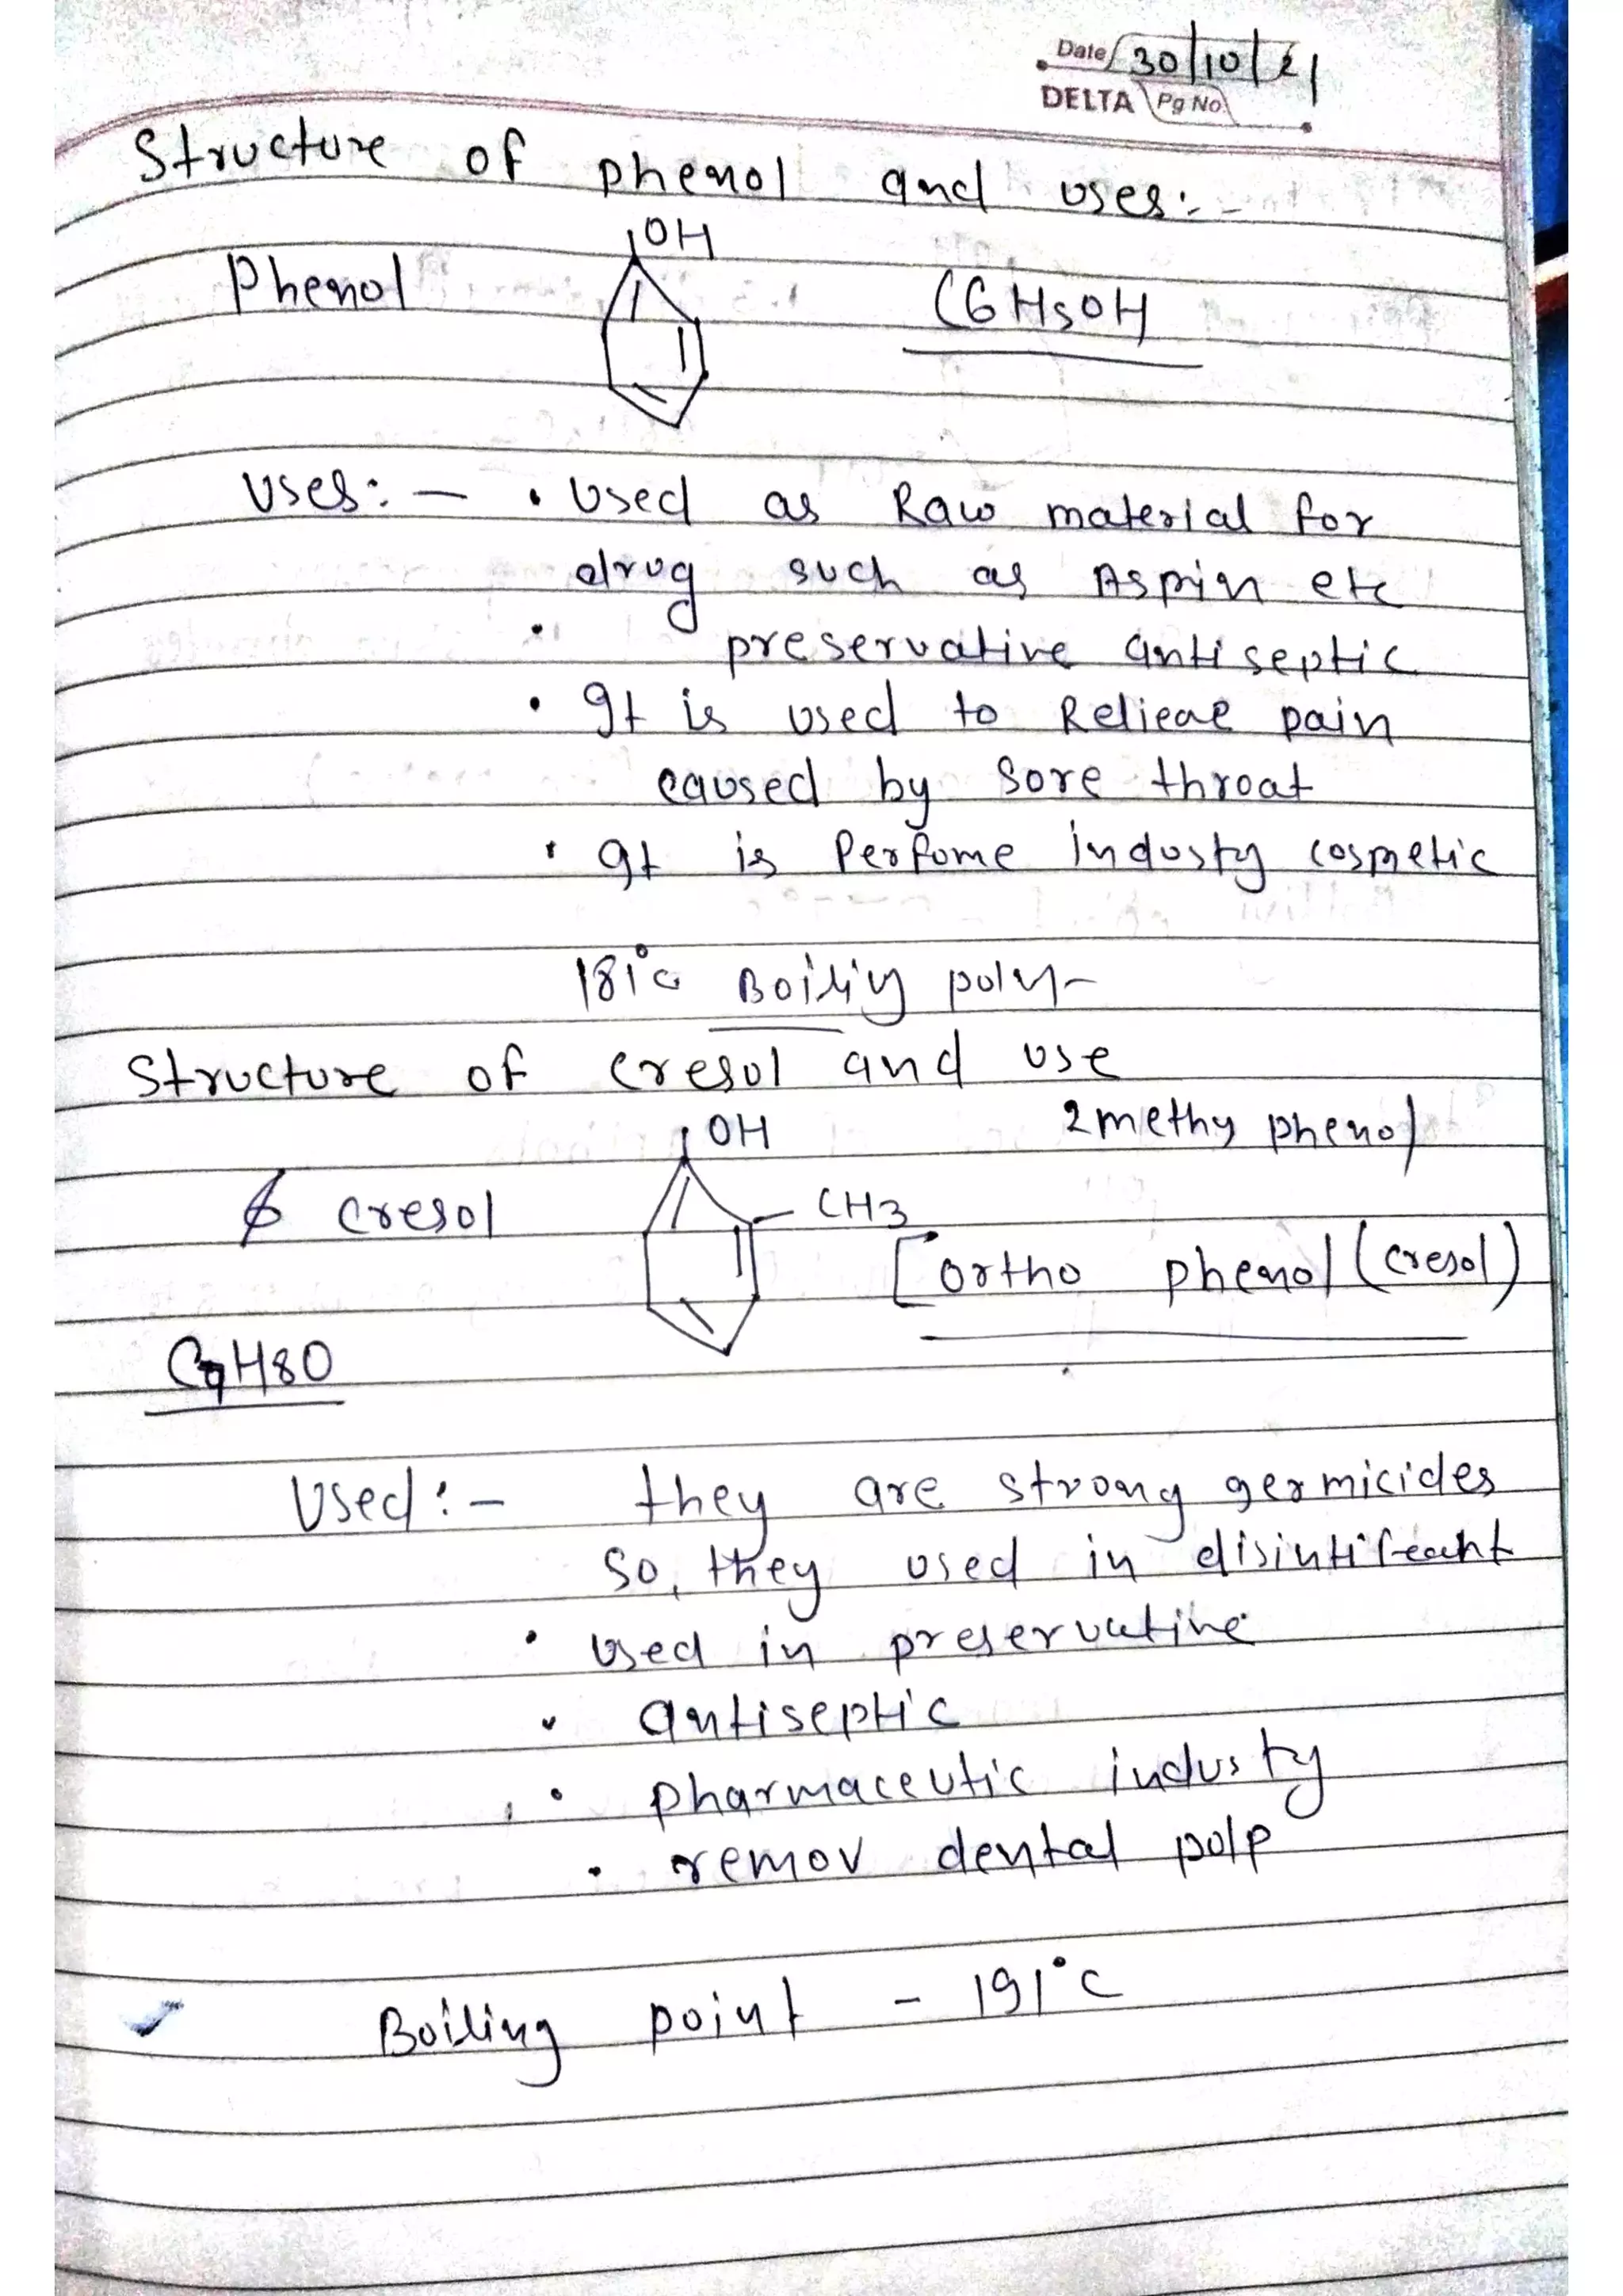 Date 30/10/21
DELTA Pg No
Structure of phenol and uses:-
OH
Phenol C6H5OH
Uses:- • Used as Raw material for
drug such as Aspin etc
• preservative antiseptic
• It is used to Relieae pain
caused by sore throat
• It is Perfume industy cosmetic
181°c Boiliy
Structure of cresol and use
OH 2 methy phenol
cresol CH3
[ortho phenol (cresol)
C7H8O
Used:- they are strong germicides
so, they used in
• used in preservative
• antiseptic
• pharmaceutic industy
• remov dental polp
Boiling point - 191°c